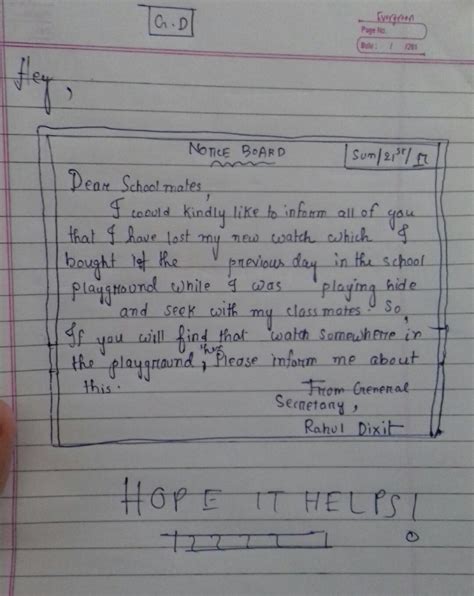 G.D
Evergreen
Page No.
Date: / /201
Hey,
NOTICE BOARD
Sun/21st/17
Dear Schoolmates,
I would kindly like to inform all of you
that I have lost my new watch which I
bought the previous day in the school
playground while I was playing hide
and seek with my classmates. So,
If you will find that watch somewhere in
the playground, then Please inform me about
this.
From General
Secretary,
Rahul Dixit
HOPE IT HELPS!